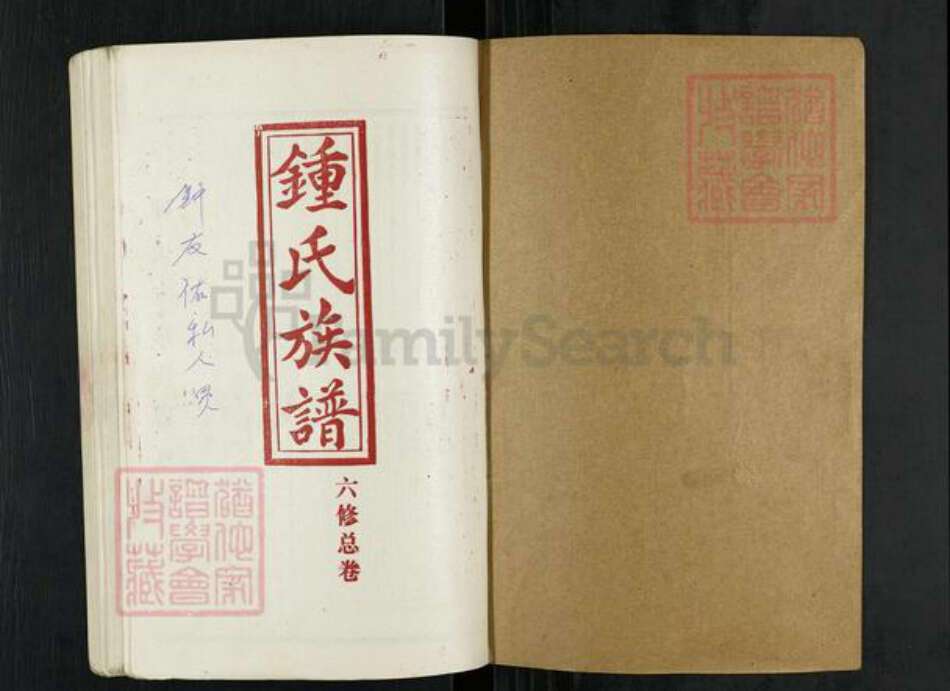 鍾氏族譜
六修总卷
友依私人
猶他家
譜學會
特藏
猶他家
譜學會
特藏
FamilySearch